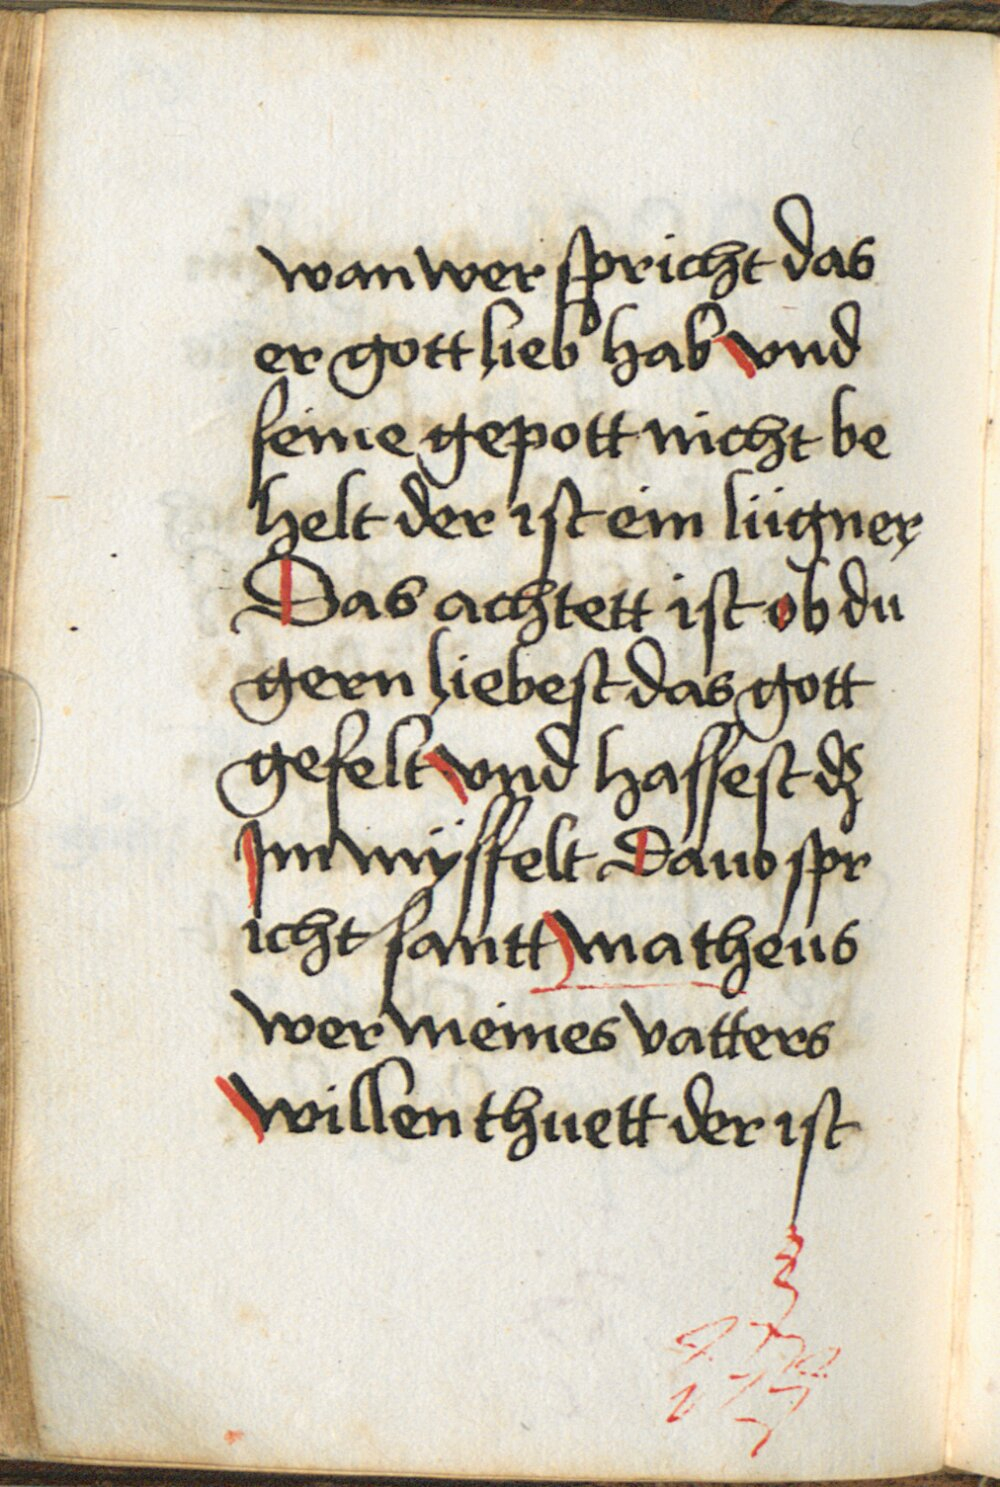 wan wer spricht das
er gott lieb hab vnd
seine gepott nicht be
helt der ist ein lügner
Das achtett ist ob du
gern liebest das gott
gefelt vnd hassest dz
Im mÿsfelt Dauo spr
icht santt matheus
wer meines vatters
willen thuett der ist